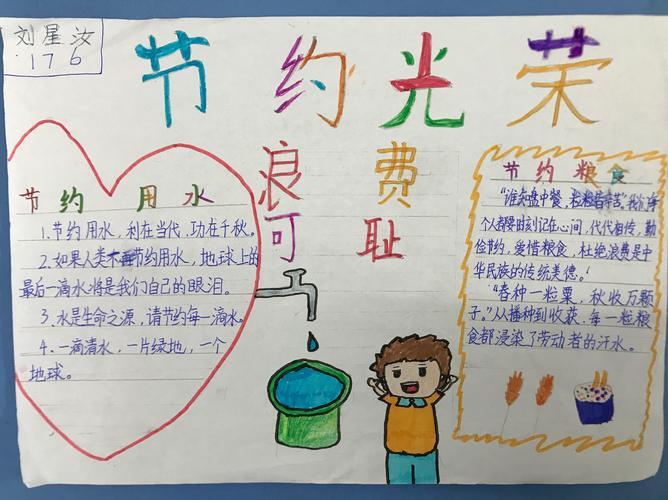 刘星汝
176
节约光荣
浪费
可耻
节约用水
1.节约用水，利在当代，功在千秋。
2.如果人类不再节约用水，地球上的
最后一滴水将是我们自己的眼泪。
3.水是生命之源，请节约每一滴水。
4.一滴清水，一片绿地，一个
地球。
节约粮食
"谁知盘中餐，粒粒皆辛苦"我们每
个人都要时刻记在心间，代代相传，勤
俭节约，爱惜粮食，杜绝浪费是中
华民族的传统美德。！
"春种一粒粟，秋收万颗
子。"从播种到收获，每一粒粮
食都浸染了劳动者的汗水。